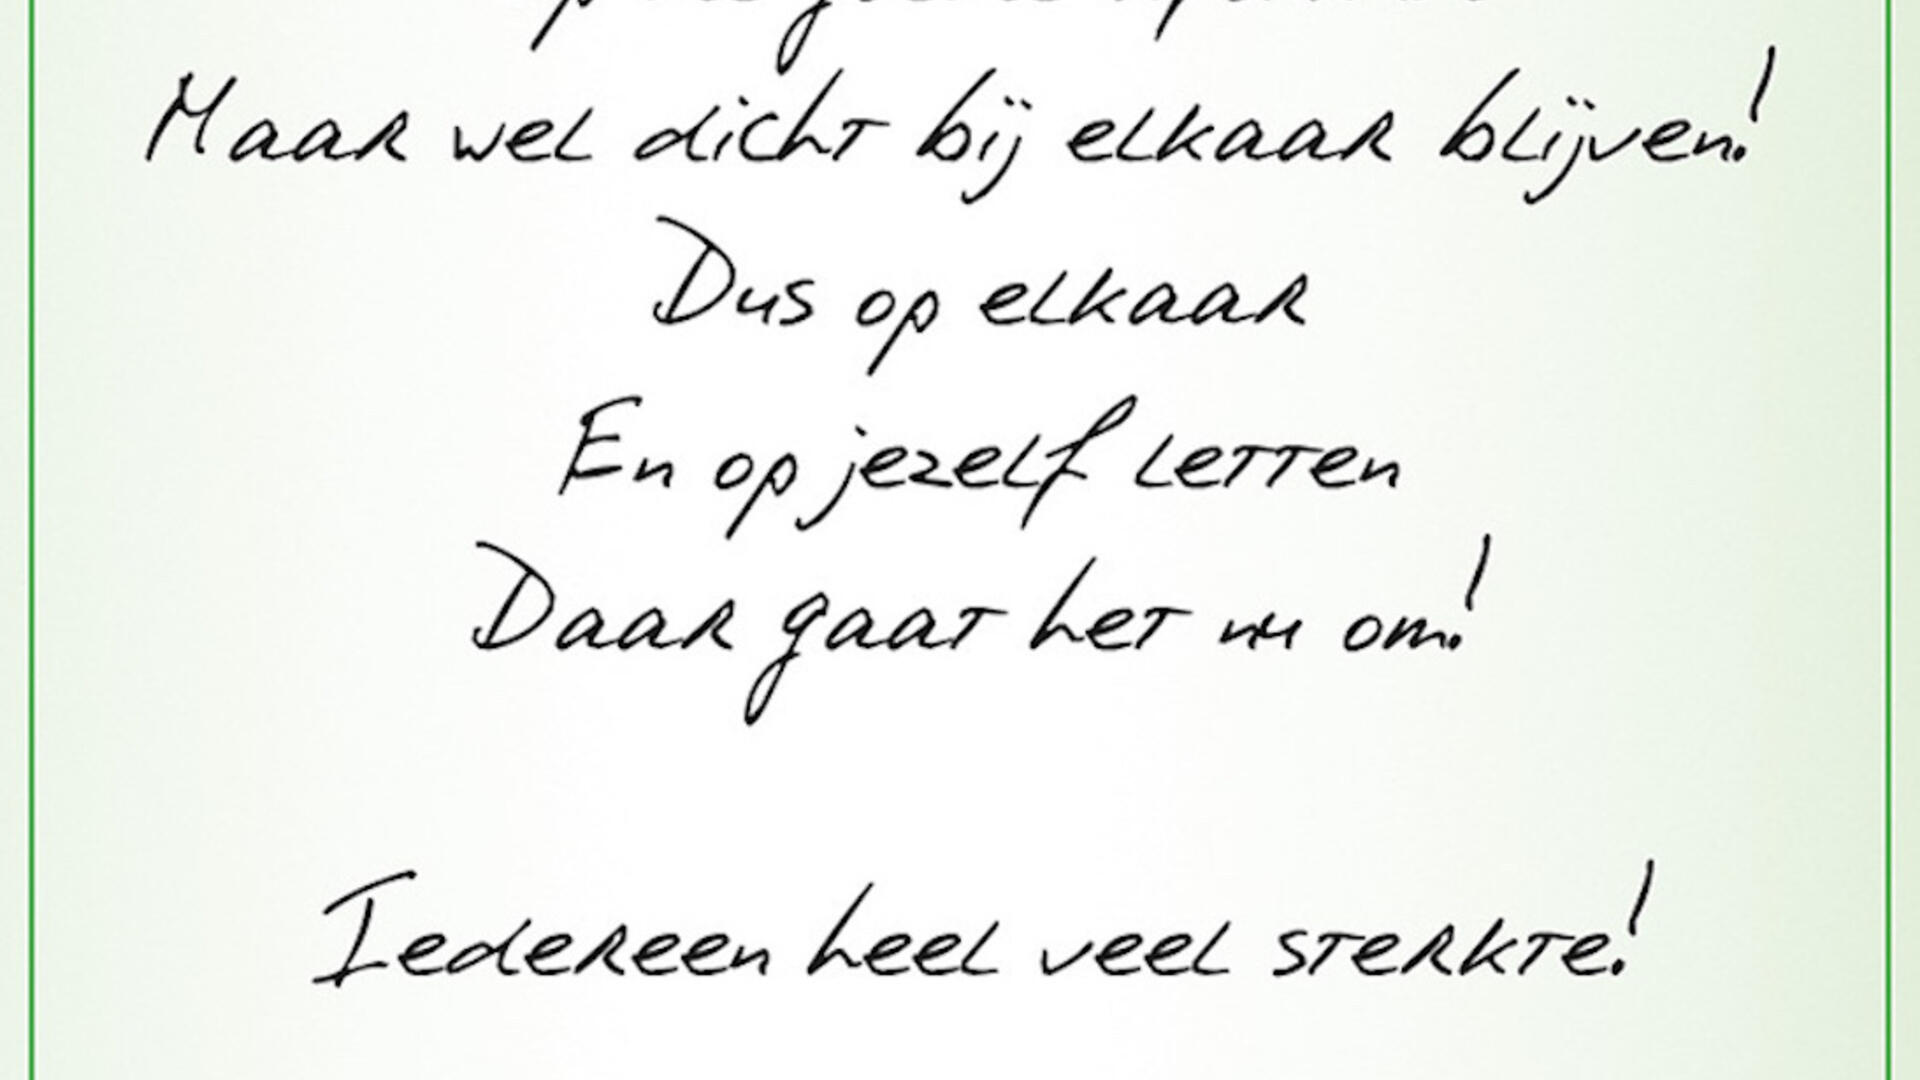 Maar wel dicht bij elkaar blijven!
Dus op elkaar
En op jezelf letten
Daar gaat het nu om!
Iedereen heel veel sterkte!